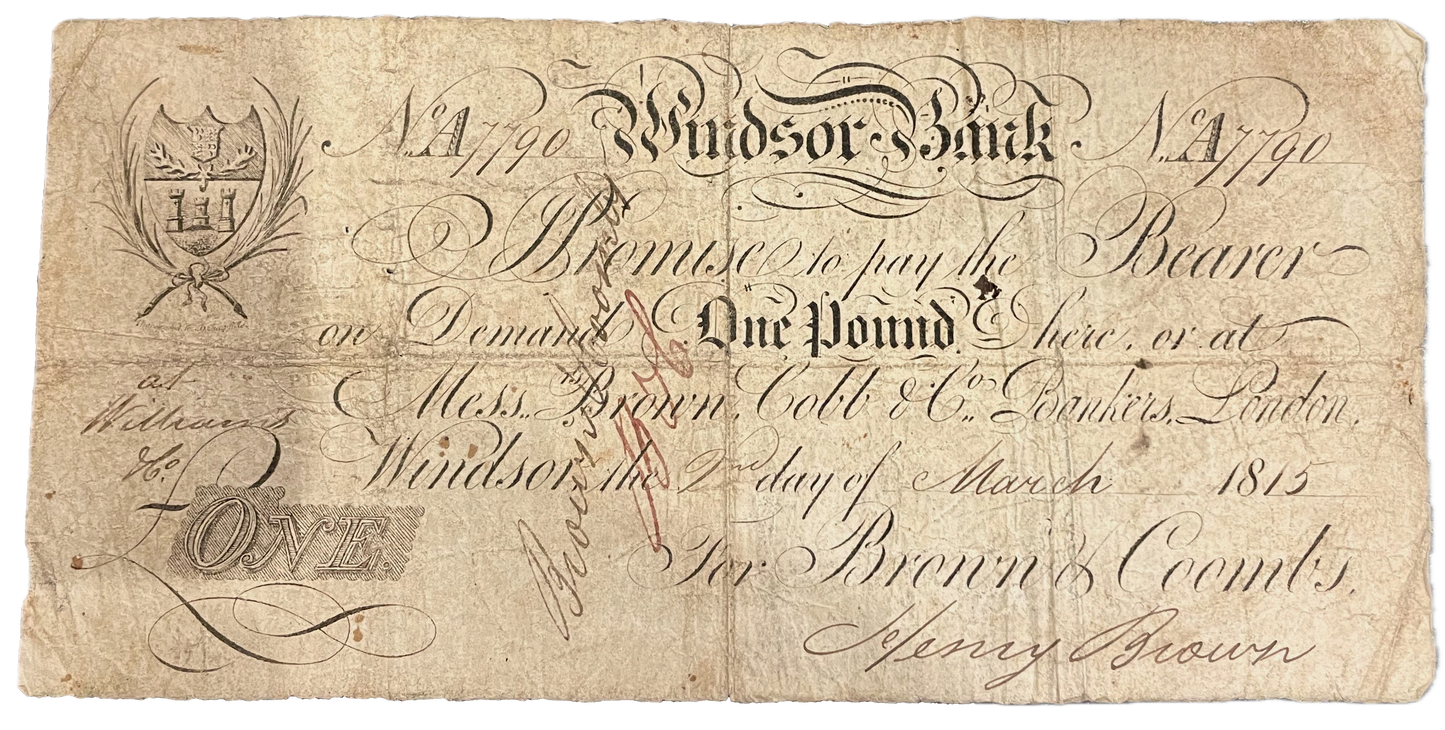 No. A7790 Windsor Bank No. A7790
I Promise to pay the Bearer
on Demand One Pound Here, or at
Messrs. Brown, Cobb & Co. Bankers, London.
Windsor the 2nd day of March 1815
For Brown & Coombs.
Henry Brown
at
Williams
& Co.
£ONE.
Brown & Coombs